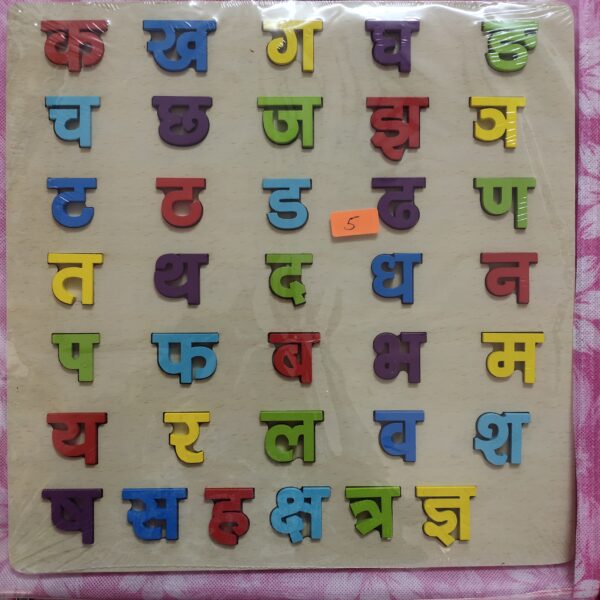 क ख ग घ ङ
च छ ज झ ञ
ट ठ ड ढ ण
5
त थ द ध न
प फ ब भ म
य र ल व श
ष स ह क्ष त्र ज्ञ